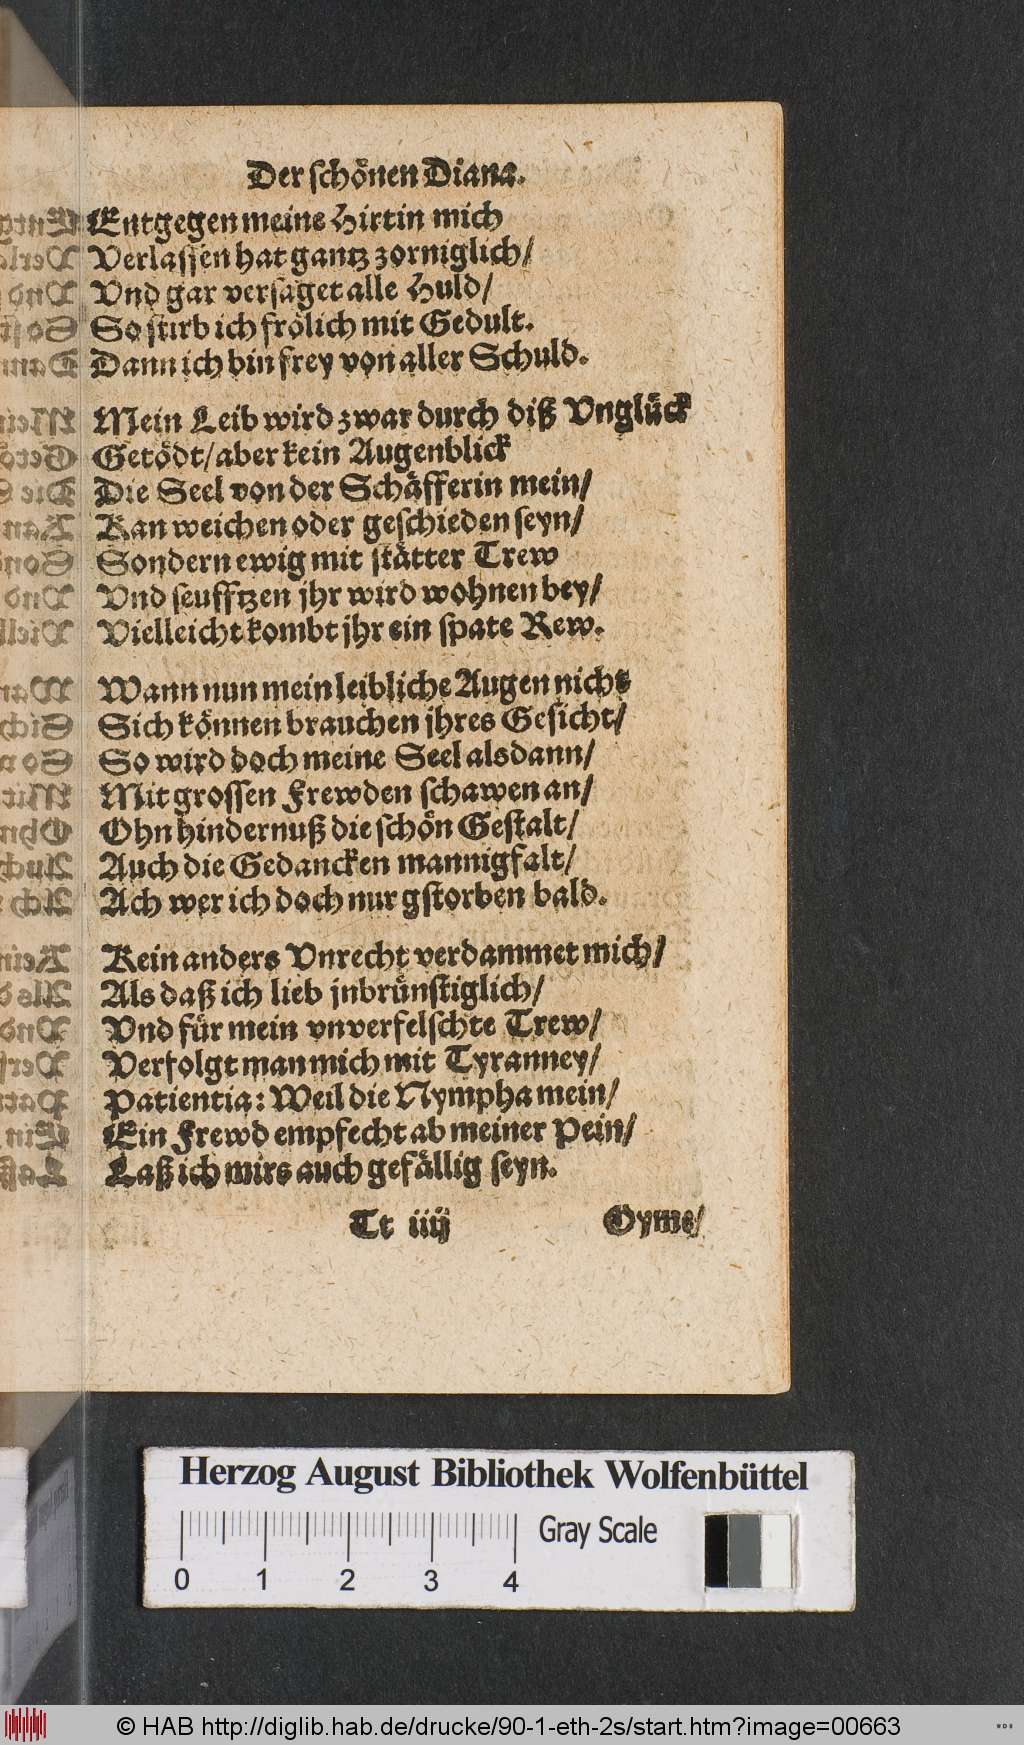 Der schönen Diana.
Entgegen meine Hirtin mich
Verlassen hat gantz zorniglich/
Vnd gar versaget alle Huld/
So stirb ich frölich mit Gedult.
Dann ich bin frey von aller Schuld.
Mein Leib wird zwar durch diß Vnglück
Getödt/ aber kein Augenblick
Die Seel von der Schäfferin mein/
Kan weichen oder geschieden seyn/
Sondern ewig mit stätter Trew
Vnd seufftzen jhr wird wohnen bey/
Vielleicht kombt jhr ein spate Rew.
Wann nun mein leibliche Augen nicht
Sich können brauchen jhres Gesicht/
So wird doch meine Seel alsdann/
Mit grossen Frewden schawen an/
Ohn hindernuß die schön Gestalt/
Auch die Gedancken mannigfalt/
Ach wer ich doch nur gstorben bald.
Kein anders Vnrecht verdammet mich/
Als daß ich lieb jnbrünstiglich/
Vnd für mein vnverfelschte Trew/
Verfolgt man mich mit Tyranney/
Patientia: Weil die Nympha mein/
Ein Frewd empfecht ab meiner Pein/
Laß ich mirs auch gefällig seyn.
Tt iiij
Oyme/
Herzog August Bibliothek Wolfenbüttel
Gray Scale
0 1 2 3 4
© HAB http://diglib.hab.de/drucke/90-1-eth-2s/start.htm?image=00663